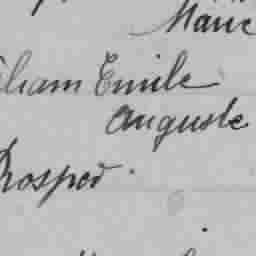 Marie
lliam Emile
Auguste
Prosper